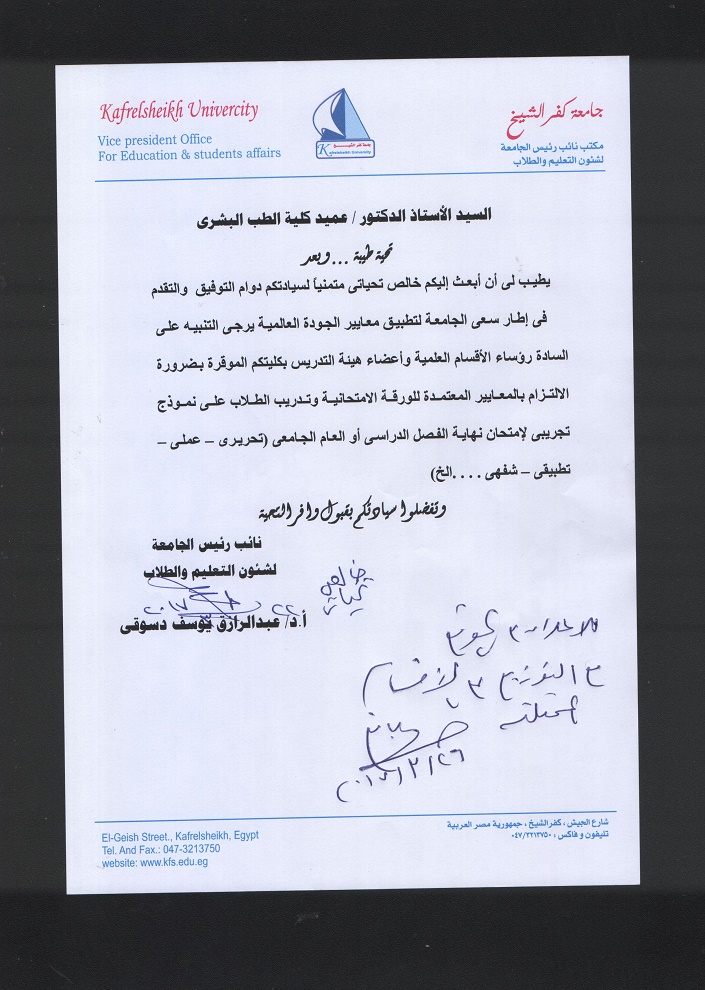 Kafrelsheikh Univercity
Vice president Office
For Education & students affairs
جامعة كفر الشيخ
Kafrelsheikh University
جامعة كفرالشيخ
مكتب نائب رئيس الجامعة
لشئون التعليم والطلاب
السيد الأستاذ الدكتور / عميد كلية الطب البشرى
تحية طيبة ... وبعد
يطيب لى أن أبعث إليكم خالص تحياتى متمنياً لسيادتكم دوام التوفيق والتقدم
فى إطار سعى الجامعة لتطبيق معايير الجودة العالمية يرجى التنبيه على
السادة رؤساء الأقسام العلمية وأعضاء هيئة التدريس بكليتكم الموقرة بضرورة
الالتزام بالمعايير المعتمدة للورقة الامتحانية وتدريب الطلاب على نموذج
تجريبى لإمتحان نهاية الفصل الدراسى أو العام الجامعى (تحريرى – عملى –
تطبيقى – شفهى ....الخ)
وتفضلوا سيادتكم بقبول وافر التحية
نائب رئيس الجامعة
لشئون التعليم والطلاب
أ.د/ عبدالرازق يوسف دسوقى
خالص
تحياتى
التوزيع
الأقسام
المختلفة
شارع الجيش ، كفرالشيخ ، جمهورية مصر العربية
تليفون و فاكس : ٠٤٧/٣٢١٣٧٥٠
El-Geish Street., Kafrelsheikh, Egypt
Tel. And Fax.: 047-3213750
website: www.kfs.edu.eg